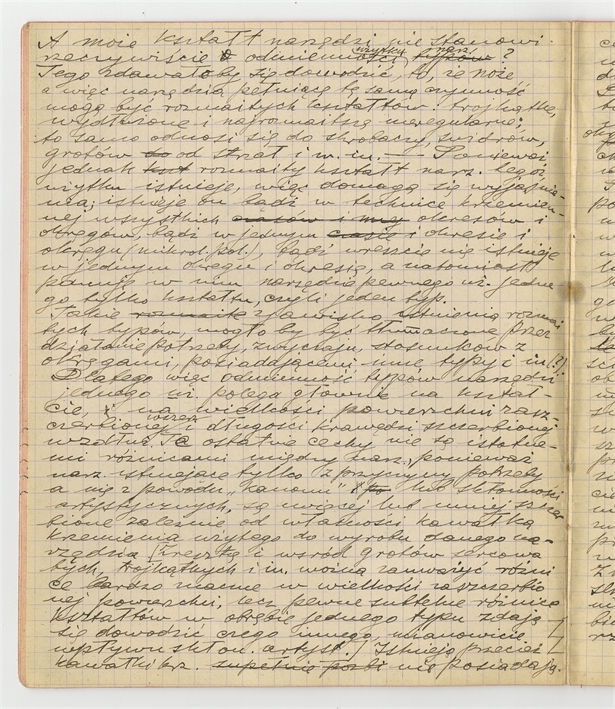 A może kształt narzędzi nie stanowi
rzeczywiście o odmienności użytku narz. typów?
Tego zdawałoby się dowodzić, to, że noże
a więc narzędzia pełniące tę samą czynność
mogą być rozmaitych kształtów: trójkątne,
wydłużone i najrozmaitszą nieregularne;
to samo odnosi się do skrobaczy, świdrów,
grotów to od strzał i w. in. — Ponieważ
jednak kszt rozmaity kształt narz. tegoż
użytku istnieje, więc domaga się wyjaśnie-
nia; istnieje on bądź w technice krzemien-
nej wszystkich czasów i my okresów i
okręgów, bądź w jednym czasie i okresie i
okręgu (mikrol. pol.), bądź wreszcie nie istnieje
w jednym okręgu i okresie, a natomiast
panuje w nim narzędzie pewnego uż. jedne-
go tylko kształtu, czyli jeden typ.
Takie rozmaite zjawisko istnienia rozmai-
tych typów, mogło by być tłumaczone przez
działanie potrzeby, zwyczaju, stosunków z
okręgami, posiadającemi inne typy i in. (?)
Dlatego więc odmienność typów narzędzi
jednego uż. polega głównie na kształ-
cie, i na wielkości powierzchni zaszcz-
czerbionej i długości krawędzi szczerbionej
wzdłuż. Te ostatnie cechy nie są istotne-
mi różnicami między narz., ponieważ
narz. istniejące tylko z przyczyny potrzeby
a nie z powodu „kanonu" lub skłonności
artystycznych, są mniej lub więcej szczer
bione zależnie od własności kawałka
krzemienia użytego do wyrobu danego na-
rzędzia. Zresztą i wśród grotów sercowa
tych, trójkątnych i in. można zauważyć różni
ce bardzo znaczne w wielkości zaszczerbio
nej powierzchni, lecz pewne subtelne różnice
kształtów w obrębie jednego typu zdają
się dowodzić czego innego, mianowicie:
wpływu skłon. artyst. / Istnieją przecież
kawałki krz. zupełnie nie posiadają